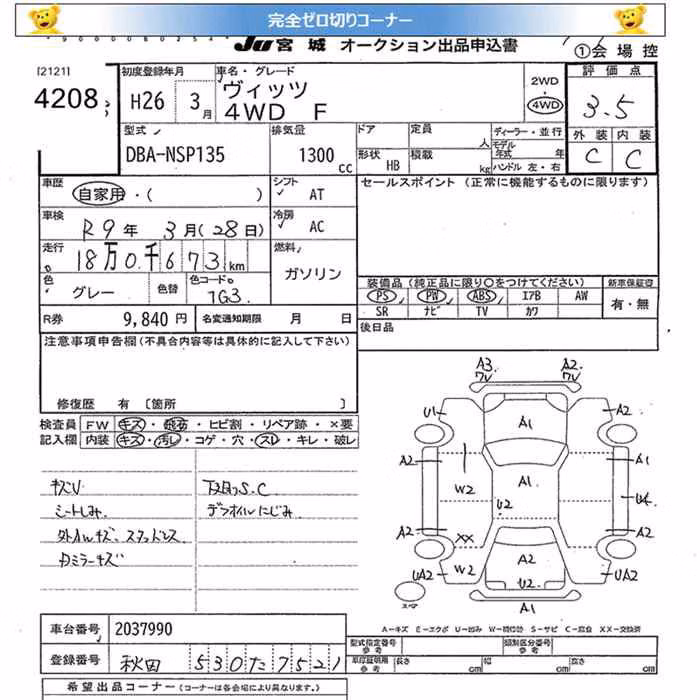 完全ゼロ切りコーナー
JU 宮城 オークション出品申込書
①会場控
[2121]
4208
初度登録年月
H26 3月
車名・グレード
ヴィッツ
4WD F
2WD
4WD
評価点
3.5
外装 内装
C C
型式
DBA-NSP135
排気量
1300 cc
ドア
定員 人
形状 HB
積載 kg
ディーラー・並行
モデル年式 年
ハンドル 左・右
車歴
自家用・( )
シフト
AT
セールスポイント (正常に機能するものに限ります)
車検
R9年 3月(28日)
冷房
AC
走行
18万0千673km
燃料
ガソリン
色
グレー
色替
色コード
1G3
装備品 (純正品に限り○をつけてください)
新車保証書
PS PW ABS エアB AW
有・無
SR ナビ TV カワ
R券 9,840円
名変通知期限 月 日
後日品
注意事項申告欄(不具合内容等は具体的に記入して下さい)
修復歴 有 〔箇所 〕
検査員記入欄
FW キズ・飛石・ヒビ割・リペア跡・×要
内装 キズ・汚レ・コゲ・穴・スレ・キレ・破レ
キズU
シートしみ
外AWキズ・スタッドレス
下廻りS.C
デフオイルにじみ
A3 7V
A2 7V
U1
A1
A2
A2
A1
A1
W2
U2
A2
A2
XX
W2
A2
U2
UA2
UA2
A1
スペア
A-キズ E-エクボ U-凹み W-補修跡 S-サビ C-腐食 XX-交換済
車台番号
2037990
型式指定番号 参考
類別区分番号 参考
登録番号
秋田 530 た 7521
車庫証明用 参考
長さ cm
幅 cm
高さ cm
希望出品コーナー (コーナーは各会場により異なります。)